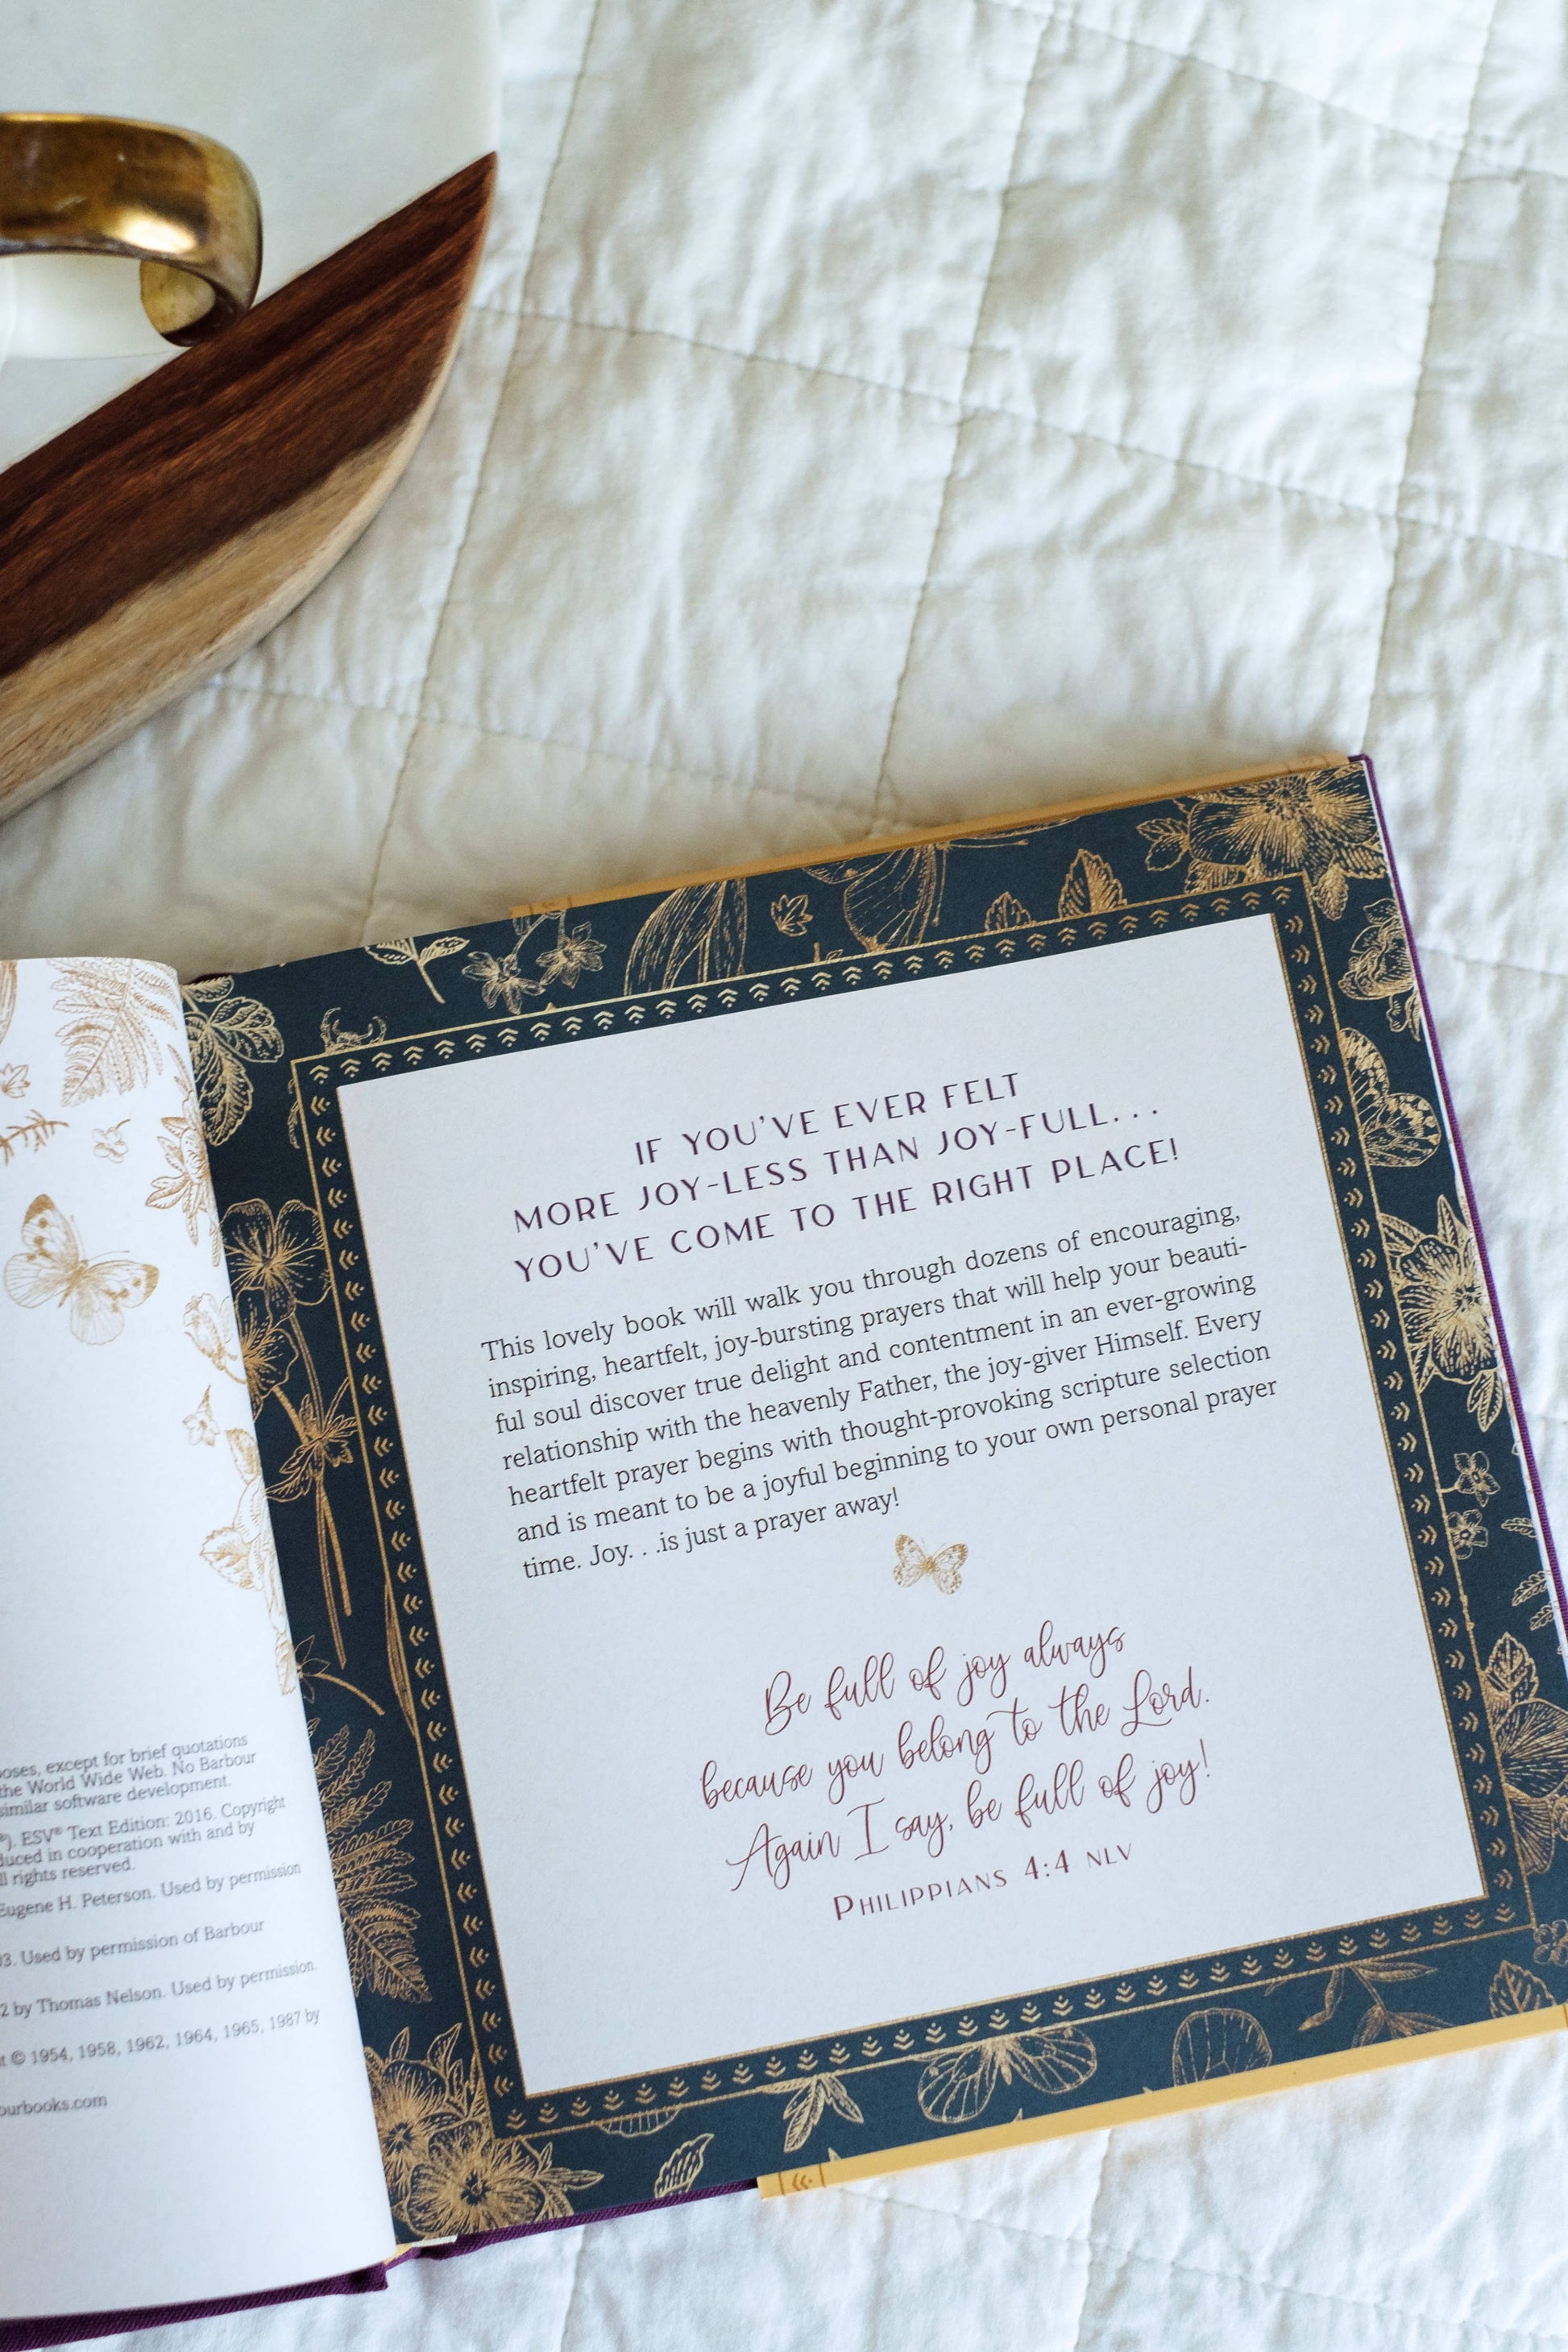 except for brief quotations
the World Wide Web. No Barbour
similar software development.
ESV® Text Edition: 2016. Copyright
in cooperation with and by
rights reserved.
Eugene H. Peterson. Used by permission
Used by permission of Barbour
by Thomas Nelson. Used by permission.
© 1954, 1958, 1962, 1964, 1965, 1987 by
IF YOU'VE EVER FELT
MORE JOY-LESS THAN JOY-FULL. . .
YOU'VE COME TO THE RIGHT PLACE!
This lovely book will walk you through dozens of encouraging,
inspiring, heartfelt, joy-bursting prayers that will help your beauti-
ful soul discover true delight and contentment in an ever-growing
relationship with the heavenly Father, the joy-giver Himself. Every
heartfelt prayer begins with thought-provoking scripture selection
and is meant to be a joyful beginning to your own personal prayer
time. Joy. . .is just a prayer away!
Be full of joy always
because you belong to the Lord.
Again I say, be full of joy!
PHILIPPIANS 4:4 NLV